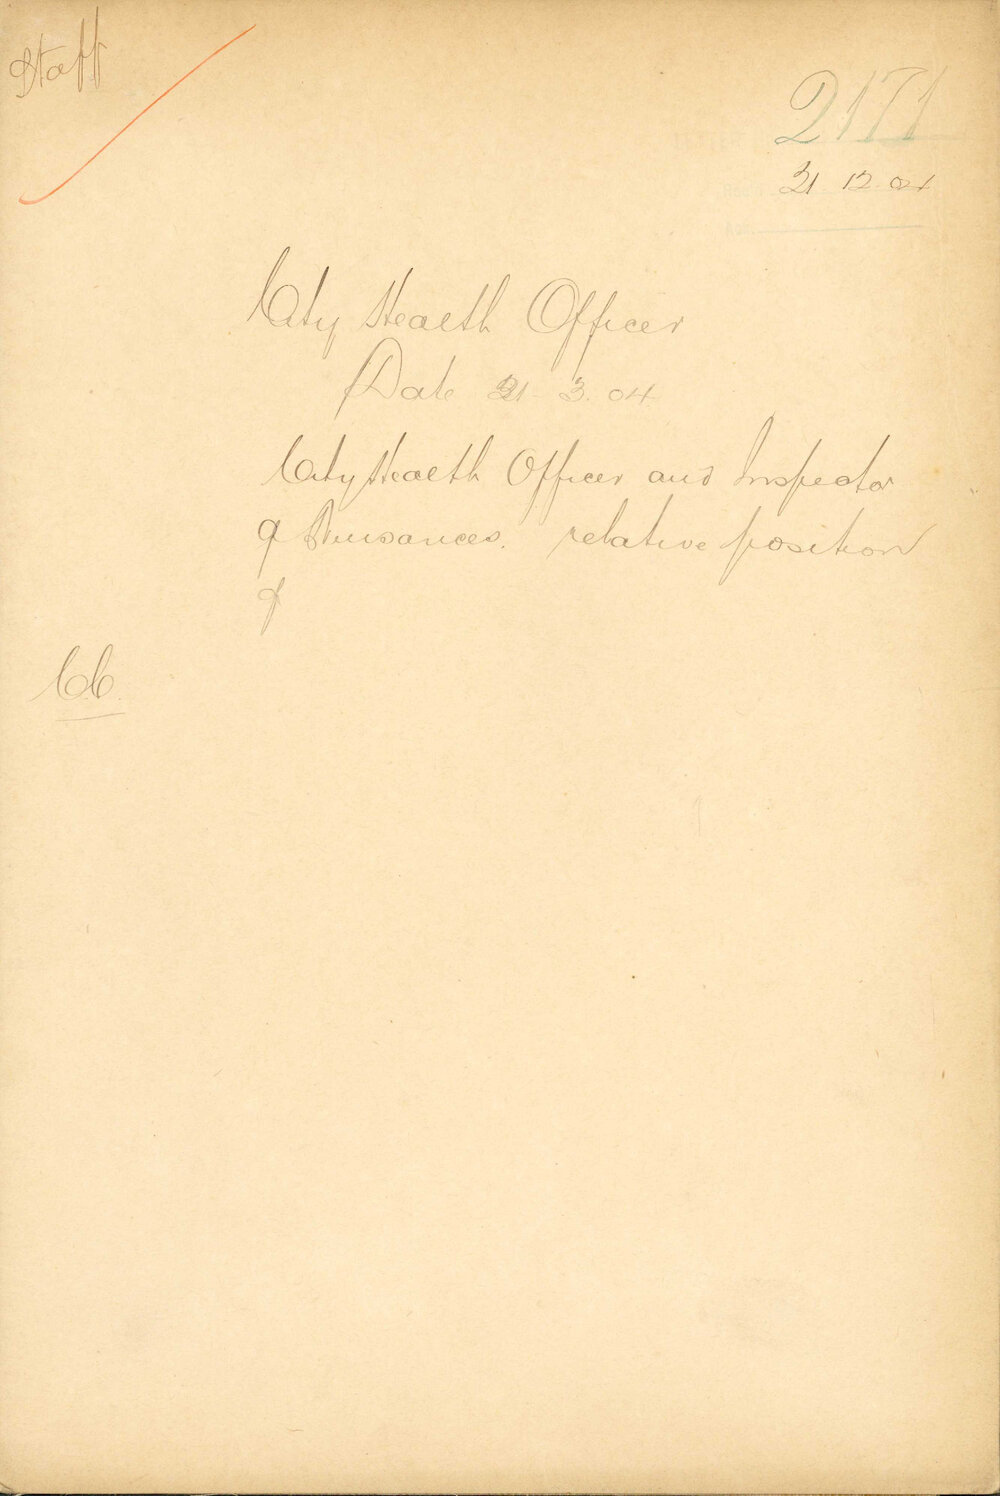 Staff
2171
21. 12. 04
City Health Officer
Date 21. 3. 04
City Health Officer and Inspector
of Nuisances. relative position
of
C.C.